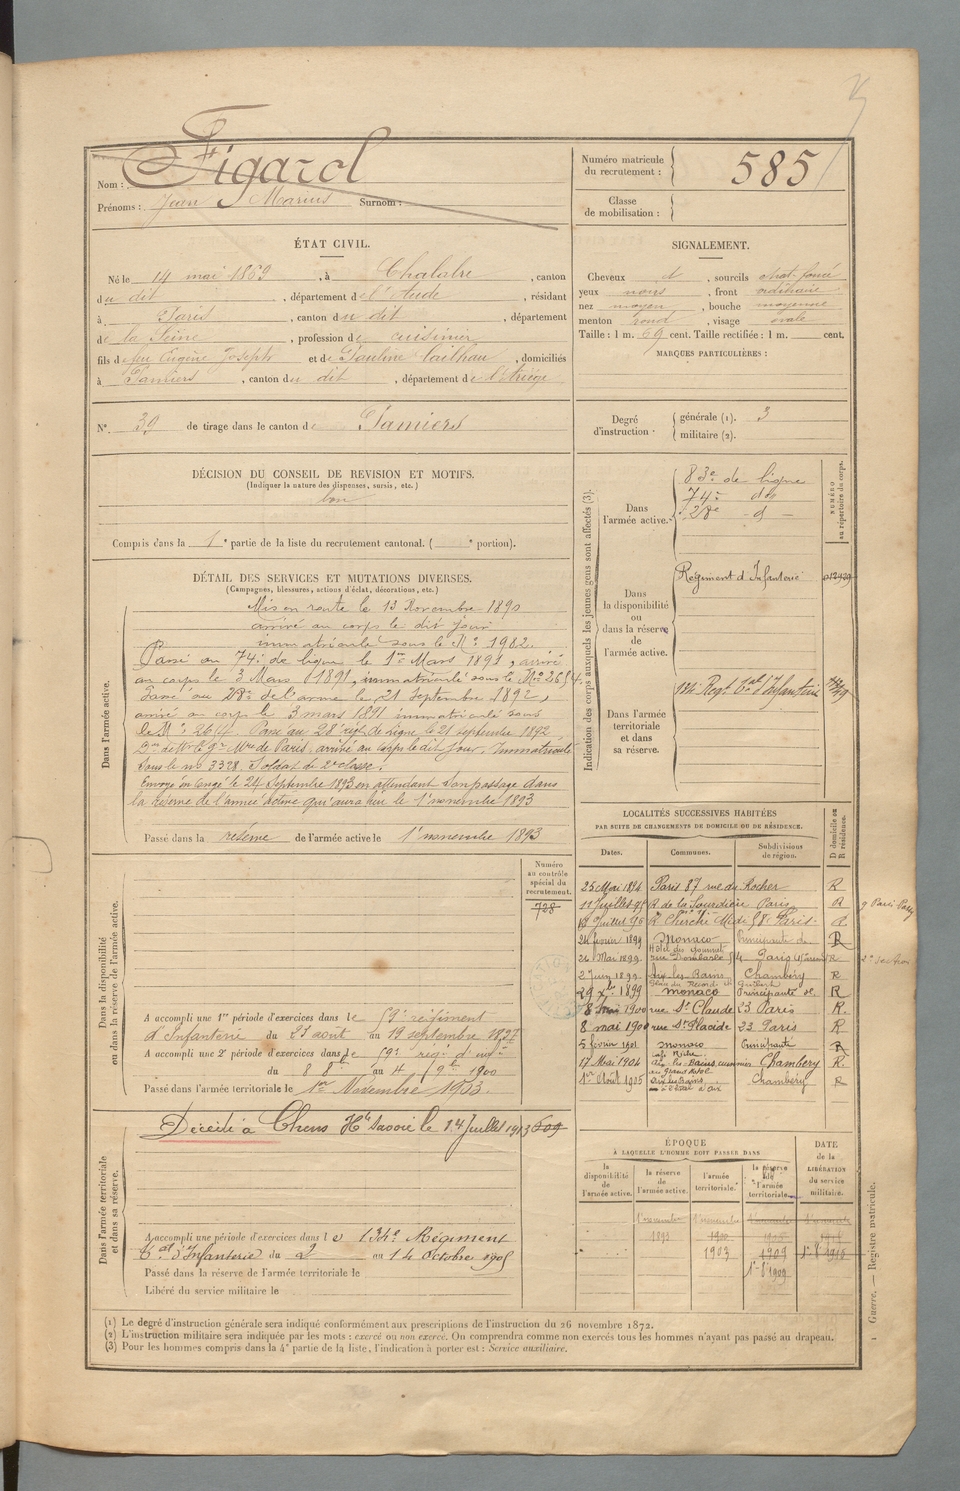 Nom : Figarol
Prénoms : Jean Marius Surnom :
Numéro matricule du recrutement : 585
Classe de mobilisation :
ÉTAT CIVIL.
Né le 14 mai 1869, à Chalabre, canton
du dit, département de l'Aude, résidant
à Paris, canton du dit, département
de la Seine, profession de cuisinier
fils de feu Eugène Joseph et de Pauline, domiciliés
à Pamiers, canton du dit, département de l'Ariège
SIGNALEMENT.
Cheveux d, sourcils chat. foncé
yeux noirs, front ordinaire
nez moyen, bouche moyenne
menton rond, visage ovale
Taille : 1 m. 69 cent. Taille rectifiée : 1 m. cent.
MARQUES PARTICULIÈRES :
N° 39 de tirage dans le canton de Pamiers
Degré d'instruction · générale (1). 3
militaire (2).
DÉCISION DU CONSEIL DE REVISION ET MOTIFS.
(Indiquer la nature des dispenses, sursis, etc.)
bon
Compris dans la 1e partie de la liste du recrutement cantonal. ( e portion).
DÉTAIL DES SERVICES ET MUTATIONS DIVERSES.
(Campagnes, blessures, actions d'éclat, décorations, etc.)
Dans l'armée active.
Mis en route le 13 Novembre 1890
arrivé au corps le dit jour
immatriculé sous le N° 1982.
Passé au 74e de ligne le 1er Mars 1891, arrivé
au corps le 3 Mars 1891, immatriculé sous le No 2654.
Passé au 28e de l'arme le 21 Septembre 1892,
arrivé au corps le 3 mars 1891 immatriculé sous
le N° Passé au 28e régt de ligne le 21 septembre 1892
de Paris, arrivé au corps le dit jour, Immatriculé
sous le no 3328. Soldat de 2e classe.
Envoyé en congé le 24 Septembre 1893 en attendant son passage dans
la réserve de l'armée active qui aura lieu le 1er novembre 1893
Passé dans la réserve de l'armée active le 1er novembre 1893
Indication des corps auxquels les jeunes gens sont affectés (3).
NUMÉRO au répertoire du corps.
Dans l'armée active.
83e de ligne
74e do
28e d
Dans la disponibilité ou dans la réserve de l'armée active.
Régiment d'Infanterie
Dans l'armée territoriale et dans sa réserve.
134 Régt tal d'Infanterie
Dans la disponibilité ou dans la réserve de l'armée active.
Numéro au contrôle spécial du recrutement.
728
A accompli une 1re période d'exercices dans le régiment
d'Infanterie du 23 août au 19 septembre 1897
A accompli une 2e période d'exercices dans le
du 8 8bre au 4 9bre 1900
Passé dans l'armée territoriale le 1er Novembre 1903.
LOCALITÉS SUCCESSIVES HABITÉES
PAR SUITE DE CHANGEMENTS DE DOMICILE OU DE RÉSIDENCE.
Dates. Communes. Subdivisions de région. D domicile ou R résidence.
25 Mai 1894 Paris 87 rue du Rocher R
11 Juillet 95 R de la Sourdière Paris R
Juillet 96 R Cherche Midi Paris R
24 février 1899 Monaco Principauté de R
26 Mai 1899 rue Dombasle Paris R
2 Juin 1899 Aix les Bains Chambéry R
29 Xbre 1899 Monaco Principauté de R
8 1900 rue St Claude 23 Paris R.
8 mai 1900 rue St Placide 23 Paris R
5 février 1901 Monaco Principauté R
17 Mai 1904 Aix-les-Bains Chambéry R.
1er Août 1905 Aix les Bains Chambéry R
Dans l'armée territoriale et dans sa réserve.
Décédé à Chens Hte Savoie le 14 Juillet 1913 609
A accompli une période d'exercices dans le 134e Régiment
tal d'Infanterie du 2 au 14 Octobre 1905
Passé dans la réserve de l'armée territoriale le
Libéré du service militaire le
ÉPOQUE
À LAQUELLE L'HOMME DOIT PASSER DANS
la disponibilité de l'armée active.
la réserve de l'armée active.
l'armée territoriale.
la réserve de l'armée territoriale.
DATE de la LIBÉRATION du service militaire.
1er novembre 1893
1903
1909
1er 8bre 1909
(1) Le degré d'instruction générale sera indiqué conformément aux prescriptions de l'instruction du 26 novembre 1872.
(2) L'instruction militaire sera indiquée par les mots : exercé ou non exercé. On comprendra comme non exercés tous les hommes n'ayant pas passé au drapeau.
(3) Pour les hommes compris dans la 4e partie de la liste, l'indication à porter est : Service auxiliaire.
1 Guerre. — Registre matricule.